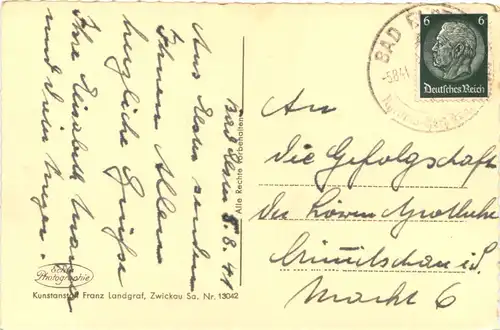 Bad Elster 5.8.41
Aus Elster senden
Ihnen Allen
herzliche Grüße
Ihre Elisabeth
und
Echte
Photographie
Kunstanstalt Franz Landgraf, Zwickau Sa. Nr. 13042
Alle Rechte vorbehalten
BAD ELSTER
-5.8.41
6 6
Deutsches Reich
An
die Gefolgschaft
der Löwen Apotheke
Crimmitschau i. S.
Markt 6